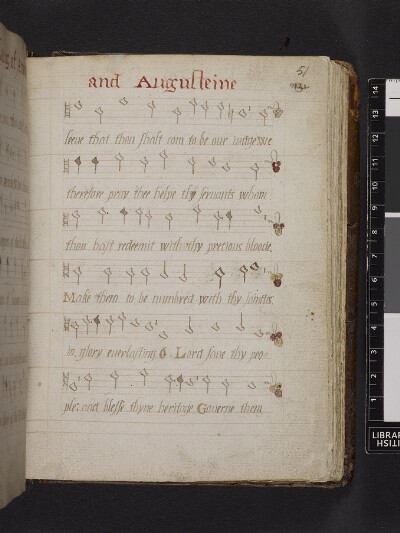 and Augusteine
51
leeve that thou shalt com to be our iudge we
therefore pray thee helpe thy servants whom
thou hast redeemit with thy pretious bloode.
Make them to be numbred with thy sanctis
in glory everlasting. O Lord save thy peo-
ple: and blesse thyne heritage. Governe them
1 2 3 4 5 6 7 8 9 10 11 12 13 14
LIBRAR
ITISH